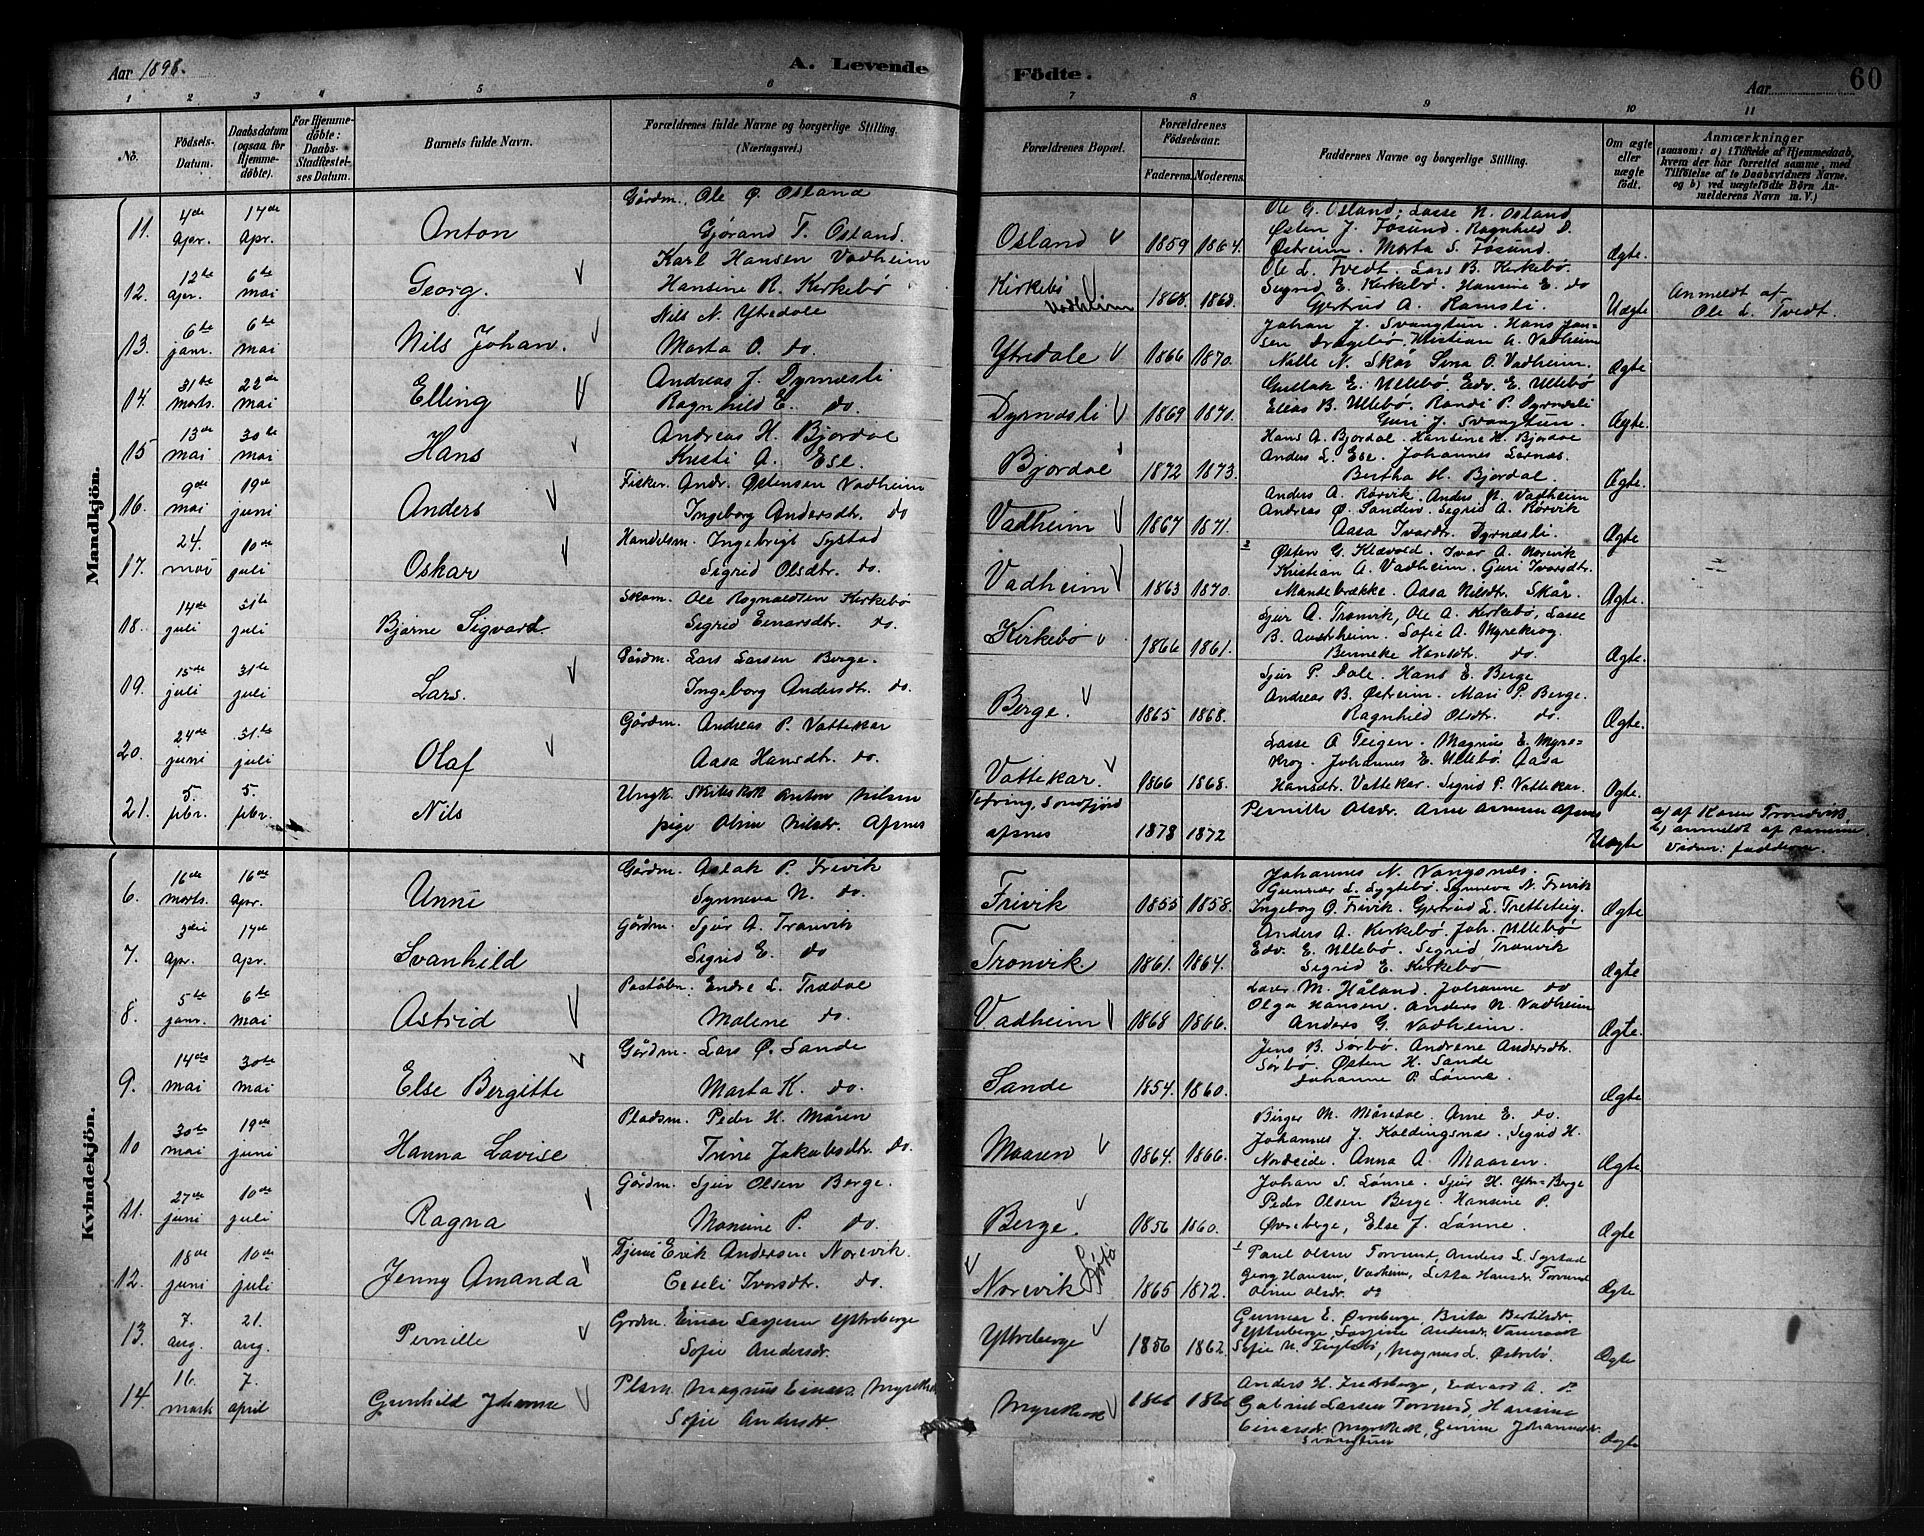 Aar 1898.
A. Levende Födte.
Aar
60
1 2 3 4 5 6 7 8 9 10 11
No.
Födsels-Datum.
Daabsdatum (ogsaa for Hjemme-döbte).
For Hjemme-döbte: Daabs-Stadfæstel-ses Datum.
Barnets fulde Navn.
Forældrenes fulde Navne og borgerlige Stilling. (Næringsvei.)
Forældrenes Bopæl.
Forældrenes Födselsaar.
Faderens. Moderens.
Faddernes Navne og borgerlige Stilling.
Om ægte eller uægte födt.
Anmærkninger
(saasom: a) i Tilfælde af Hjemmedaab, hvem der har forrettet samme, med Tilföielse af to Daabsvidners Navne. og b) ved uægtefödte Börn Anmelderens Navn m. V.)
Mandkjön.
11. 4de apr. 17de apr. Anton
Gårdm. Ole Ø. Osland
Gjørand T. Osland.
Osland 1859 1864.
Ole G. Osland, Lasse N. Osland
Østen J. Føsund. Ragnhild D.
Østreim. Marta S. Føsund.
Ægte.
12. 12te apr. 6te mai Georg.
Karl Hansen Vadheim
Hansine R. Kirkebø
Kirkebø
Vadheim
1868. 1868.
Ole L. Tvedt. Lars B. Kirkebø.
Sigrid E. Kirkebø. Hansine E. do
Gjertrud A. Ramsli.
Uægte
Anmeldt af
Ole L. Tvedt.
13. 6te janr. 6te mai Nils Johan.
Nils N. Ytredale
Marta O. do.
Ytredale 1866 1870.
Johan J. Svangtun. Hans Jan-
sen Dragebø. Kristian A. Vadheim
Nille N. Skår Sina O. Vadheim.
Ægte
14 31te marts. 22de mai Elling
Andreas J. Dyrnesli
Ragnhild E. do.
Dyrnesli 1869 1871.
Gullak E. Ullebø. Edv. E. Ullebø
Elias B. Ullebø. Randi P. Dyrnesli
Guri J. Svangtun.
Ægte.
15 13de mai 30te mai Hans
Andreas H. Bjordal
Kristi A. Ese.
Bjordal 1872 1873.
Hans A. Bjordal. Hansine H. Bjordal
Anders L. Ese. Johannes Lornæs.
Bertha H. Bjordal.
Ægte.
16. 9de mai 19de juni Anders
Fisker. Andr. Østensen Vadheim
Ingeborg Andersdtr. do
Vadheim 1867 1871.
Anders A. Rørvik. Anders N. Vadheim
Andreas Ø. Sanden. Sigrid A. Rørvik
Aasa Ivarsdtr. Dyrnesli.
Ægte
17. 24. mai 10de juli Oskar
Handelsm. Ingebrigt Systad
Sigrid Olsdtr. do.
Vadheim 1863 1870.
Østen G. Klævold. Ivar A. Norevik
Kristian A. Vadheim. Guri Ivarsdtr.
Mandebrække. Aasa Nilsdtr. Skår.
Ægte.
18. 14de juli 31te juli Bjarne Sigvard.
Skom. Ole Ragnaldsen Kirkebø
Sigrid Einarsdtr. do.
Kirkebø 1866 1861.
Sjur A. Tronvik, Ole A. Kirkebø, Lasse
B. Austrheim. Sofie A. Myrekrog.
Benneke Hansdtr. do.
Ægte.
19. 15de juli 31te juli Lars.
Gårdm. Lars Larsen Berge.
Ingeborg Andersdtr. do.
Berge. 1865 1868.
Sjur P. Dale. Hans E. Berge
Andreas B. Østreim. Mari P. Berge.
Ragnhild Olsdtr. do.
Ægte.
20. 24de juni 31te juli Olaf
Gårdm. Andreas P. Vattekar
Aasa Hansdtr. do.
Vattekar. 1866 1868.
Lasse A Teigen. Magnus E. Myre-
krog. Johannes E. Ullebø. Aasa
Hansdtr. Vattekar. Sigrid P. Vattekar.
Ægte.
21. 5. febr. 5. febr. Nils
Ungk. Anton Nilsen
pige Oline Nilsdr. Apnes
Søndfjord
apnes
1878 1872
Pernille Olsdr.
Uægte
a) af Karen Trondvik,
b) anmeldt af samme.
Vidner: fadderne.
Kvindekjön.
6. 16de marts. 16de apr. Unni
Gårdm. Aslak P. Frivik
Synneva N. do.
Frivik 1855 1858.
Johannes N. Vangsnæs.
Gunnar L. Lygtebø. Synneva N. Frivik
Ingeborg O. Frivik. Gjertrud L. Tretteteig.
Ægte
7. 3die apr. 17de apr. Svanhild
Gårdm. Sjur A. Tronvik
Sigrid E. do
Tronvik. 1861. 1864.
Anders A. Kirkebø. Joh. Ullebø
Edv. E. Ullebø. Sigrid Tronvik
Sigrid E. Kirkebø
Ægte
8. 5te janr. 6te mai Astrid
Poståbn. Endre L. Trædal
Malene do.
Vadheim 1868 1866.
Laver M. Håland. Johanne do
Olga Hansen. Anders N. Vadheim
Anders G. Vadheim.
Ægte.
9. 14de mai 30te mai Else Bergitte
Gårdm. Lars Ø. Sande
Marta K. do.
Sande 1854. 1860.
Jens B. Sørbø. Andrine Andersdtr.
Sørbø. Østen H. Sande
Johanne P. Lønne.
Ægte
10 30te mai 19de juni Hanna Lovise
Pladsm. Peder H. Måren
Trine Jakobsdtr. do.
Maaren 1864. 1866.
Birger M. Måredal. Arne E. do.
Johannes J. Koldingsnæs. Sigrid H.
Nordeide. Anna A. Maaren.
Ægte
11. 27de juni 10de juli Ragna
Gårdm. Sjur Olsen Berge.
Monsine P. do.
Berge. 1856 1860.
Johan S. Lønne. Sjur H. Ytre-Berge
Peder Olsen Berge. Hansine P.
Øvreberge, Else J. Lønne.
Ægte
12. 18de juni 10de juli Jenny Amanda
Tjener Erik Andersen Norevik.
Ceseli Ivarsdtr. do.
Norevik 1865 1872.
Paul Olsen Torvund, Anders L. Systad
Georg Hansen, Vadheim, Lotta Hansdr. Torvund
Oline Olsdr. do
Ægte
13. 7. aug. 21. aug. Pernille
Grdm. Einar Ytreberge
Sofie Andersdr.
Ytreberge 1856 1862.
Gunnar E. Øvreberge, Brita Bertilsdr.
Ytreberge, Andersdr.
Sofie N. Magnus L. Østrebø.
Ægte
14. 16. mark 7. april Gunhild Johanne
Plsm. Magnus Einars. Myrekrok
Sofie Andersdr.
Myrekrok 1866 1866
Anders H. Indreberge, Edvard A. do
Gabriel Larsen Torvund, Hansine
Einarsdr. Myrekrok, Gurine Johannesdr.
Svangtun
Ægte